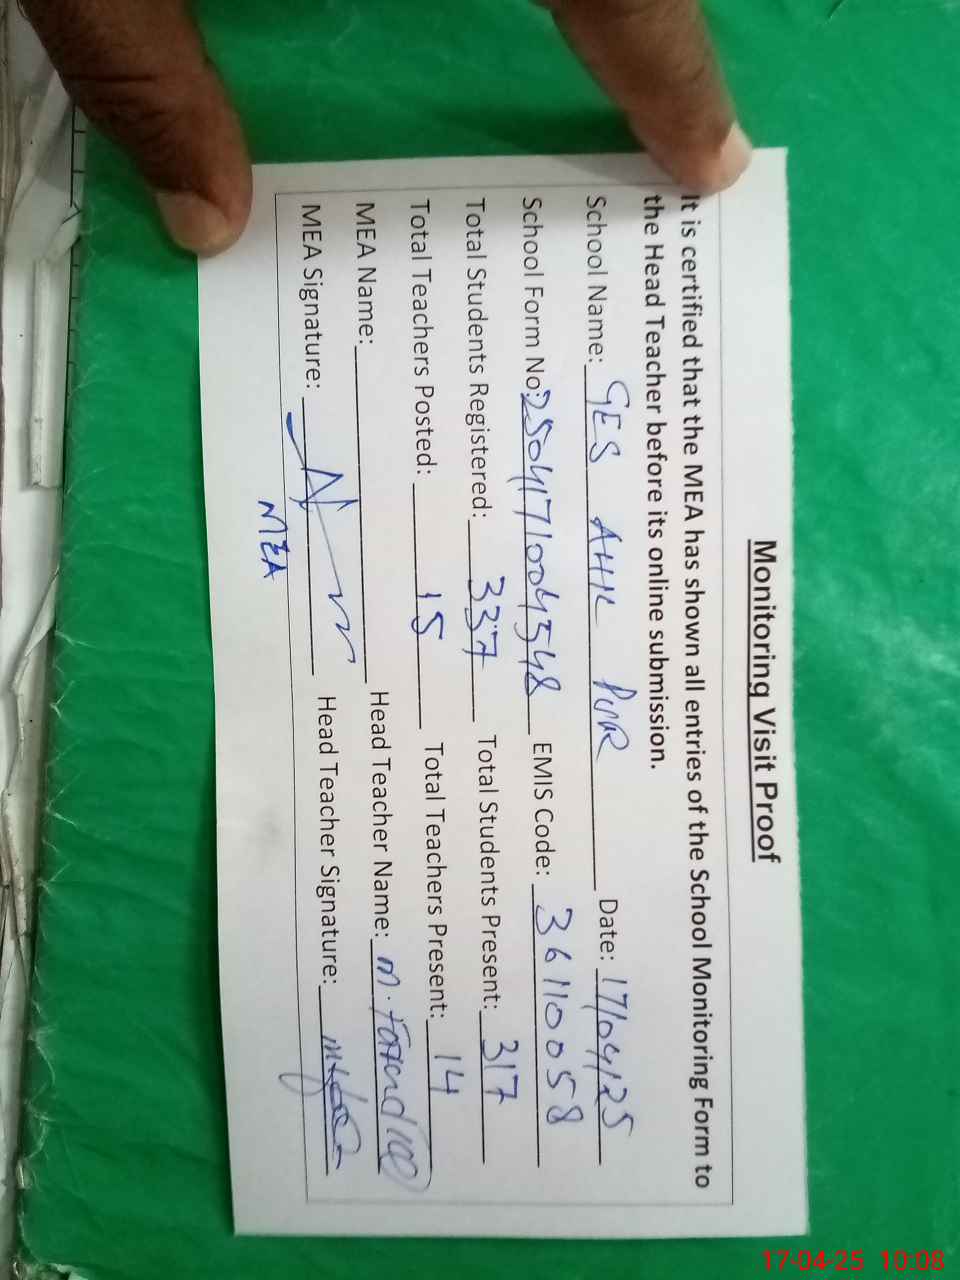 Monitoring Visit Proof
It is certified that the MEA has shown all entries of the School Monitoring Form to
the Head Teacher before its online submission.
School Name: GES AHK PUR Date: 17/04/25
School Form No: 2504171004548 EMIS Code: 36110058
Total Students Registered: 337 Total Students Present: 317
Total Teachers Posted: 15 Total Teachers Present: 14
MEA Name: Head Teacher Name: M.
MEA Signature: Head Teacher Signature:
MEA
17-04-25 10:08